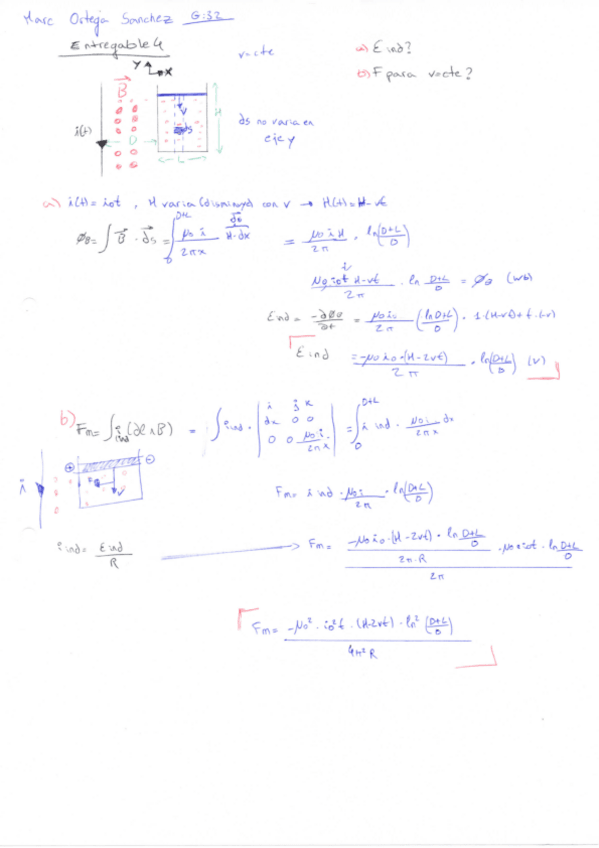 Marc Ortega Sanchez G:32
Entregable 4
v=cte
a) Eind?
b) F para v=cte?
Y
X
B
i(t)
D
v
ds
H
L
ds no varia en
eje y
a) i(t) = i0t , H varia (disminuye) con v → H(t) = H - vt
ØB = ∫ B · ds = ∫ D+L D μ0 i / 2πx H·dx ds = μ0 i H / 2π · ln(D+L/D)
i
μ0 i0t H-vt / 2π · ln D+L/D = ØB (Wb)
Eind = -∂ØB/∂t = μ0 i0 / 2π (ln D+L/D) · 1·(H-vt)+t·(-v)
Eind = -μ0 i0·(H-2vt) / 2π · ln(D+L/D) (V)
b) Fm = ∫ i ind (dl ∧ B) = ∫ i ind · | i j k dx 0 0 0 0 μ0 i / 2πx | = ∫ D+L D i ind · μ0 i / 2πx dx
i
v
Fm = i ind · μ0 i / 2π · ln(D+L/D)
i ind = Eind / R → Fm = -μ0 i0·(H-2vt) · ln D+L/D / 2π·R · μ0 · i0t · ln D+L/D / 2π
Fm = -μ0² · i0² t · (H-2vt) · ln² (D+L/D) / 4π² R